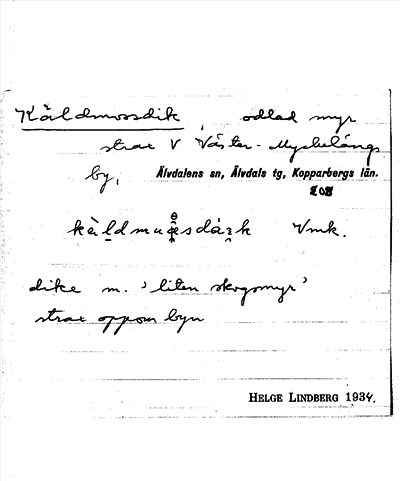 Källdmossdik, odlad myr
strax V Väster-Myckelängs
by, Älvdalens sn, Älvdals tg, Kopparbergs län.
208
Vmk.
dike m. 'liten skogsmyr'
strax oppom byn
HELGE LINDBERG 1934.